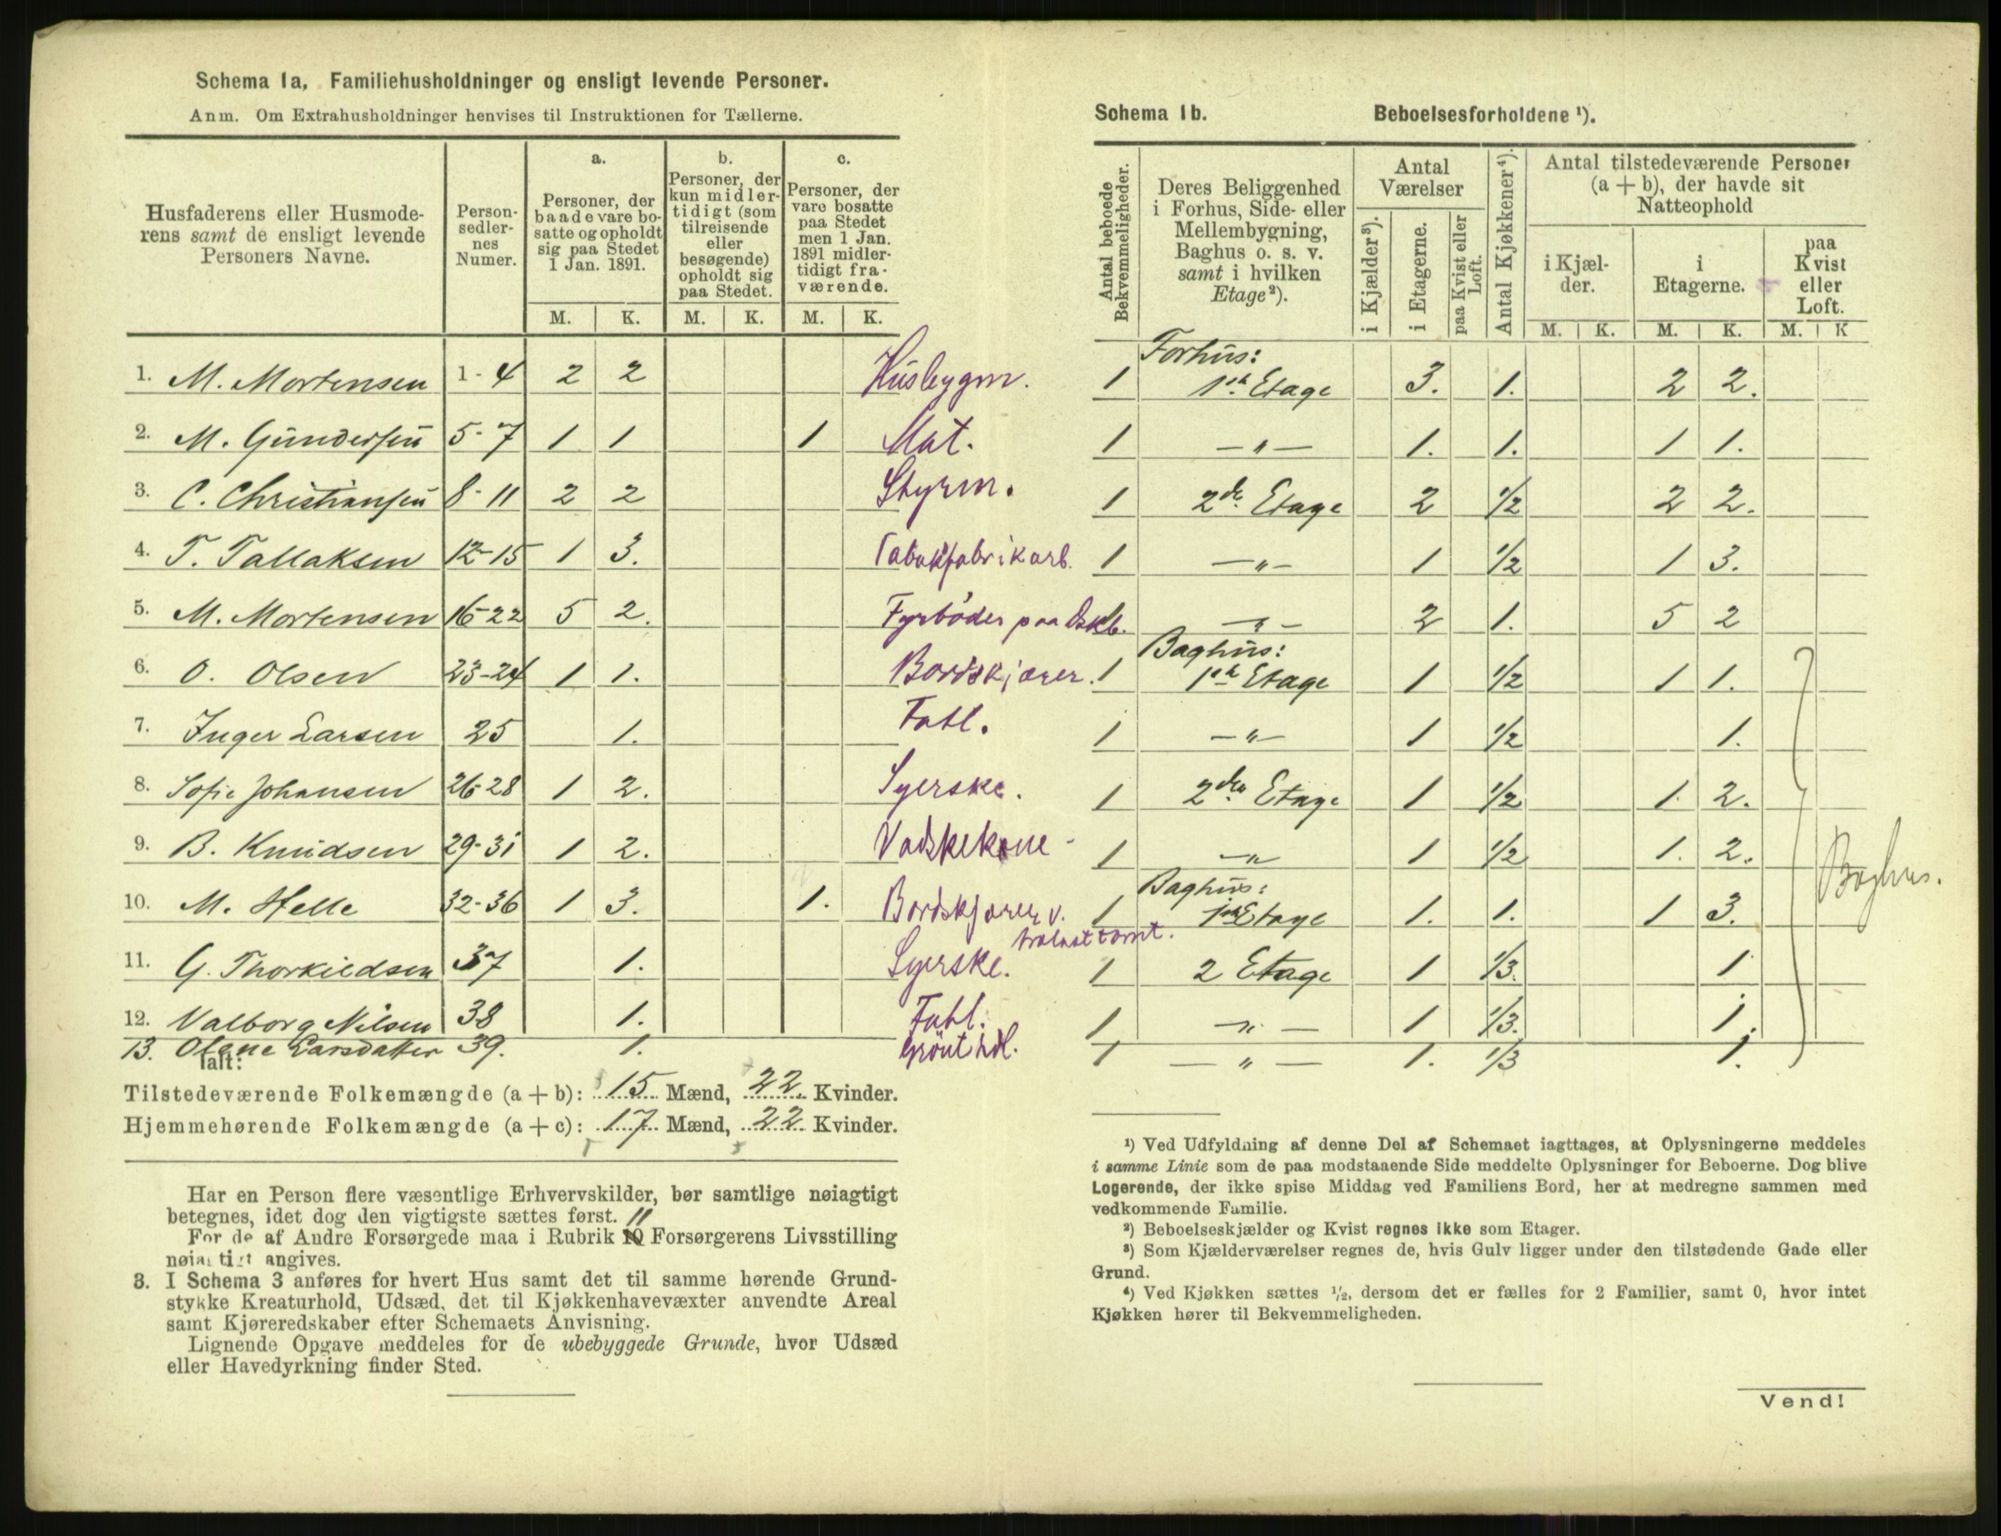 Schema 1a, Familiehusholdninger og ensligt levende Personer.
Anm. Om Extrahusholdninger henvises til Instruktionen for Tællerne.
Husfaderens eller Husmoderens samt de ensligt levende Personers Navne.
Personsedlernes Numer.
a. Personer, der baade vare bosatte og opholdt sig paa Stedet 1 Jan. 1891.
b. Personer, der kun midlertidigt (som tilreisende eller besøgende) opholdt sig paa Stedet.
c. Personer, der vare bosatte paa Stedet men 1 Jan. 1891 midlertidigt fraværende.
M. K. M. K. M. K.
1. M. Mortensen 1-4 2 2 Husbygm.
2. M. Gundersen 5-7 1 1 1 Mat.
3. C. Christiansen 8-11 2 2 Styrm.
4. T. Tallaksen 12-15 1 3. Tabakfabrikarb.
5. M. Mortensen 16-22 5 2. Fyrbøder paa Dskb.
6. O. Olsen 23-24 1 1. Bordskjærer.
7. Inger Larsen 25 1. Fatl.
8. Sofie Johansen 26-28 1 2. Syerske.
9. B. Knudsen 29-31 1 2. Vadskekone
10. M. Helle 32-36 1 3. 1. Bordskjærer v. trælasttomt.
11. G. Thorkildsen 37 1. Syerske.
12. Valborg Nilsen 38 1. Fatl.
13. Olene Larsdatter 39. 1. Grønthdl.
Ialt:
Tilstedeværende Folkemængde (a + b): 15 Mænd, 22. Kvinder.
Hjemmehørende Folkemængde (a + c): 17 Mænd, 22 Kvinder.
Har en Person flere væsentlige Erhvervskilder, bør samtlige nøiagtigt
betegnes, idet dog den vigtigste sættes først. 11
For de af Andre Forsørgede maa i Rubrik 10 Forsørgerens Livsstilling
nøiagtigt angives.
3. I Schema 3 anføres for hvert Hus samt det til samme hørende Grund-
stykke Kreaturhold, Udsæd, det til Kjøkkenhavevæxter anvendte Areal
samt Kjøreredskaber efter Schemaets Anvisning.
Lignende Opgave meddeles for de ubebyggede Grunde, hvor Udsæd
eller Havedyrkning finder Sted.
Schema 1b. Beboelsesforholdene ¹).
Antal beboede Bekvemmeligheder.
Deres Beliggenhed i Forhus, Side- eller Mellembygning, Baghus o. s. v. samt i hvilken Etage²).
Antal Værelser
i Kjælder³). i Etagerne. paa Kvist eller Loft.
Antal Kjøkkener⁴).
Antal tilstedeværende Personer (a + b), der havde sit Natteophold
i Kjælder. i Etagerne. paa Kvist eller Loft.
M. K. M. K. M. K
Forhus:
1 1ste Etage 3. 1. 2 2.
1 — " — 1. 1. 1 1.
1 2de Etage 2 1/2 2 2.
1 — " — 1 1/2 1 3.
1 — " — 2 1. 5 2
Baghus:
1 1ste Etage 1 1/2 1 1.
1 — " — 1 1/2 1.
1 2den Etage 1 1/2 1. 2.
1 — " — 1 1/2 1. 2.
Baghus:
1 1ste Etage 1. 1. 1 3.
1 2 Etage 1 1/3. 1
1 — " — 1 1/3. 1.
1 — " — 1. 1/3 1.
Baghus.
¹) Ved Udfyldning af denne Del af Schemaet iagttages, at Oplysningerne meddeles
i samme Linie som de paa modstaaende Side meddelte Oplysninger for Beboerne. Dog blive
Logerende, der ikke spise Middag ved Familiens Bord, her at medregne sammen med
vedkommende Familie.
²) Beboelseskjælder og Kvist regnes ikke som Etager.
³) Som Kjælderværelser regnes de, hvis Gulv ligger under den tilstødende Gade eller
Grund.
⁴) Ved Kjøkken sættes ½, dersom det er fælles for 2 Familier, samt 0, hvor intet
Kjøkken hører til Bekvemmeligheden.
Vend!